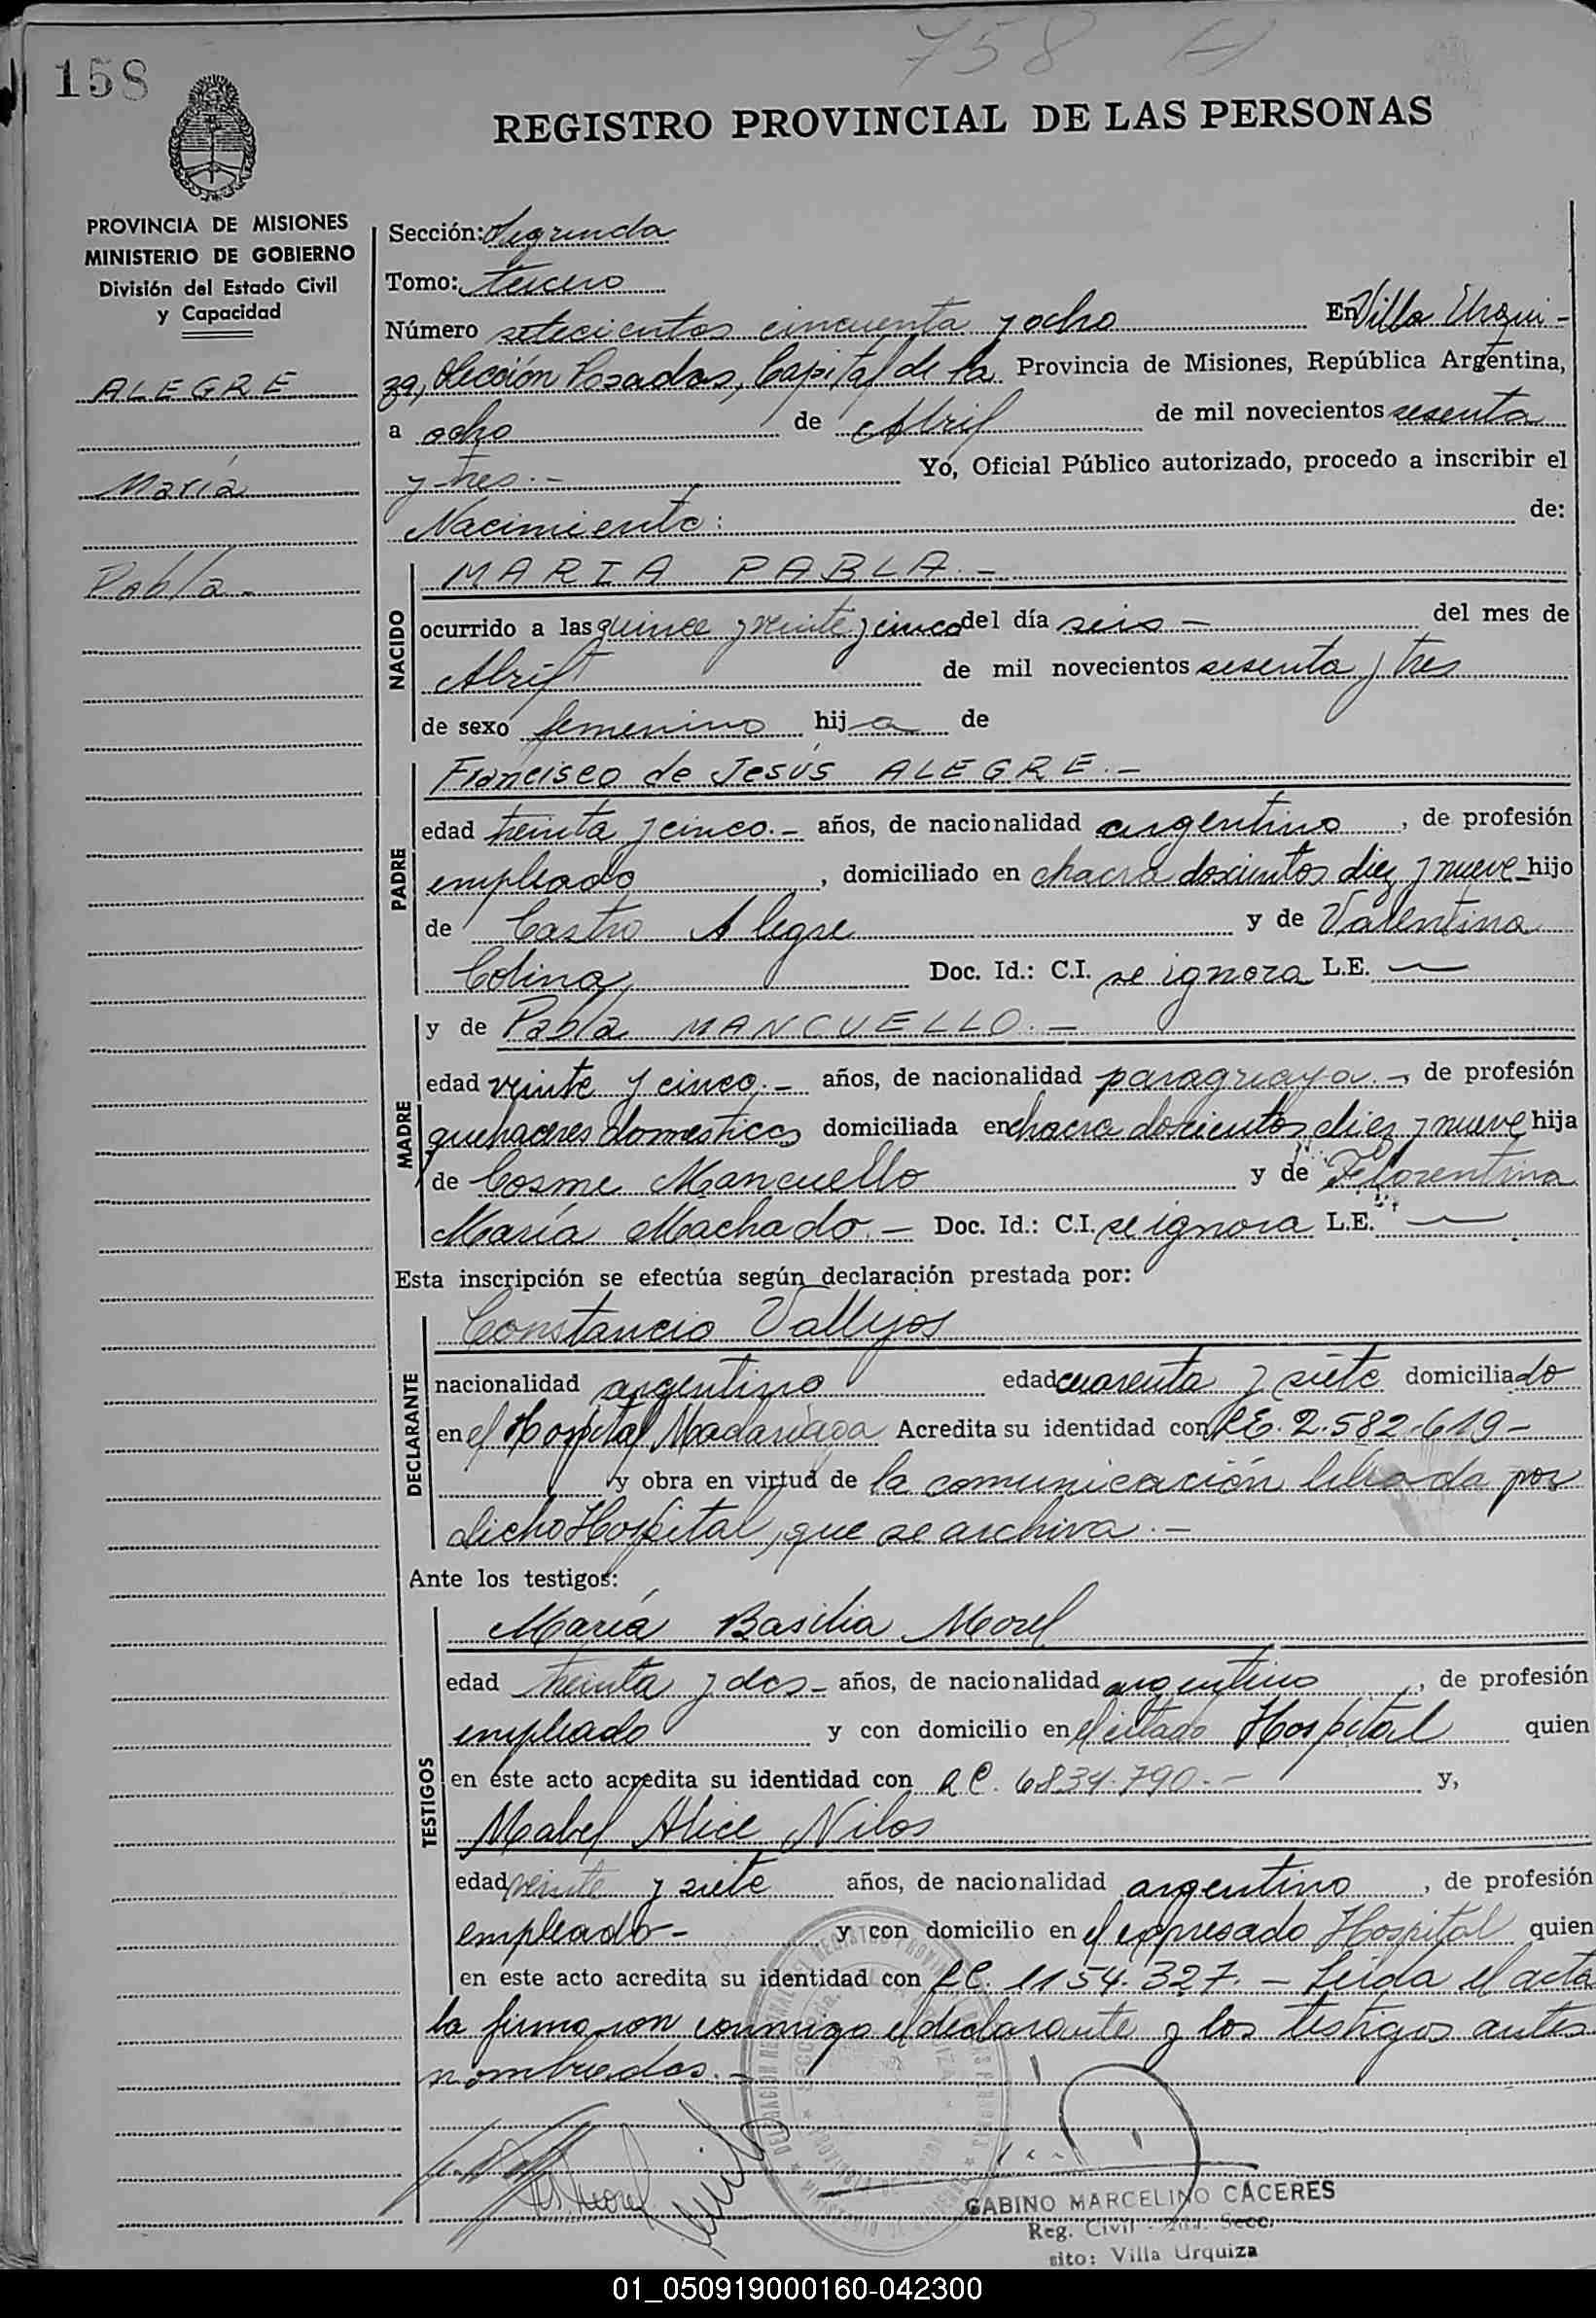 758
158
REGISTRO PROVINCIAL DE LAS PERSONAS
PROVINCIA DE MISIONES
MINISTERIO DE GOBIERNO
División del Estado Civil
y Capacidad
ALEGRE
María
Pabla.-
Sección: Segunda
Tomo: tercero
Número setecientos cincuenta y ocho En Villa Urqui-
za, Sección Posadas, Capital de la Provincia de Misiones, República Argentina,
a ocho de Abril de mil novecientos sesenta
y tres.- Yo, Oficial Público autorizado, procedo a inscribir el
Nacimiento: de:
NACIDO
MARIA PABLA.-
ocurrido a las quince y veinte y cinco del día seis - del mes de
Abril de mil novecientos sesenta y tres
de sexo femenino hija de
PADRE
Francisco de Jesús ALEGRE.-
edad treinta y cinco.- años, de nacionalidad argentino, de profesión
empleado, domiciliado en chacra doscientos diez y nueve hijo
de Castro Alegre y de Valentina
Colina Doc. Id.: C.I. se ignora L.E. —
MADRE
y de Pabla MANCUELLO.-
edad veinte y cinco.- años, de nacionalidad paraguaya.-, de profesión
quehaceres domesticos domiciliada en chacra doscientos diez y nueve hija
de Cosme Mancuello y de Florentina
María Machado.- Doc. Id.: C.I. se ignora L.E. —
Esta inscripción se efectúa según declaración prestada por:
DECLARANTE
Constancio Vallejos
nacionalidad argentino edad cuarenta y siete domiciliado
en el Hospital Madariaga Acredita su identidad con L.E. 2.582.619-
y obra en virtud de la comunicación librada por
dicho Hospital, que se archiva.-
Ante los testigos:
TESTIGOS
María Basilia Morel
edad treinta y dos- años, de nacionalidad argentino, de profesión
empleado y con domicilio en el citado Hospital quien
en este acto acredita su identidad con L.C. 6834.790.- y,
Mabel Alice Nilos
edad veinte y siete años, de nacionalidad argentino, de profesión
empleado- y con domicilio en el expresado Hospital quien
en este acto acredita su identidad con L.C. 1154.327.- Leida el acta
la firmaron conmigo el declarante y los testigos antes
nombrados.-
GABINO MARCELINO CACERES
Reg. Civil Secc.
sito: Villa Urquiza
01_050919000160-042300